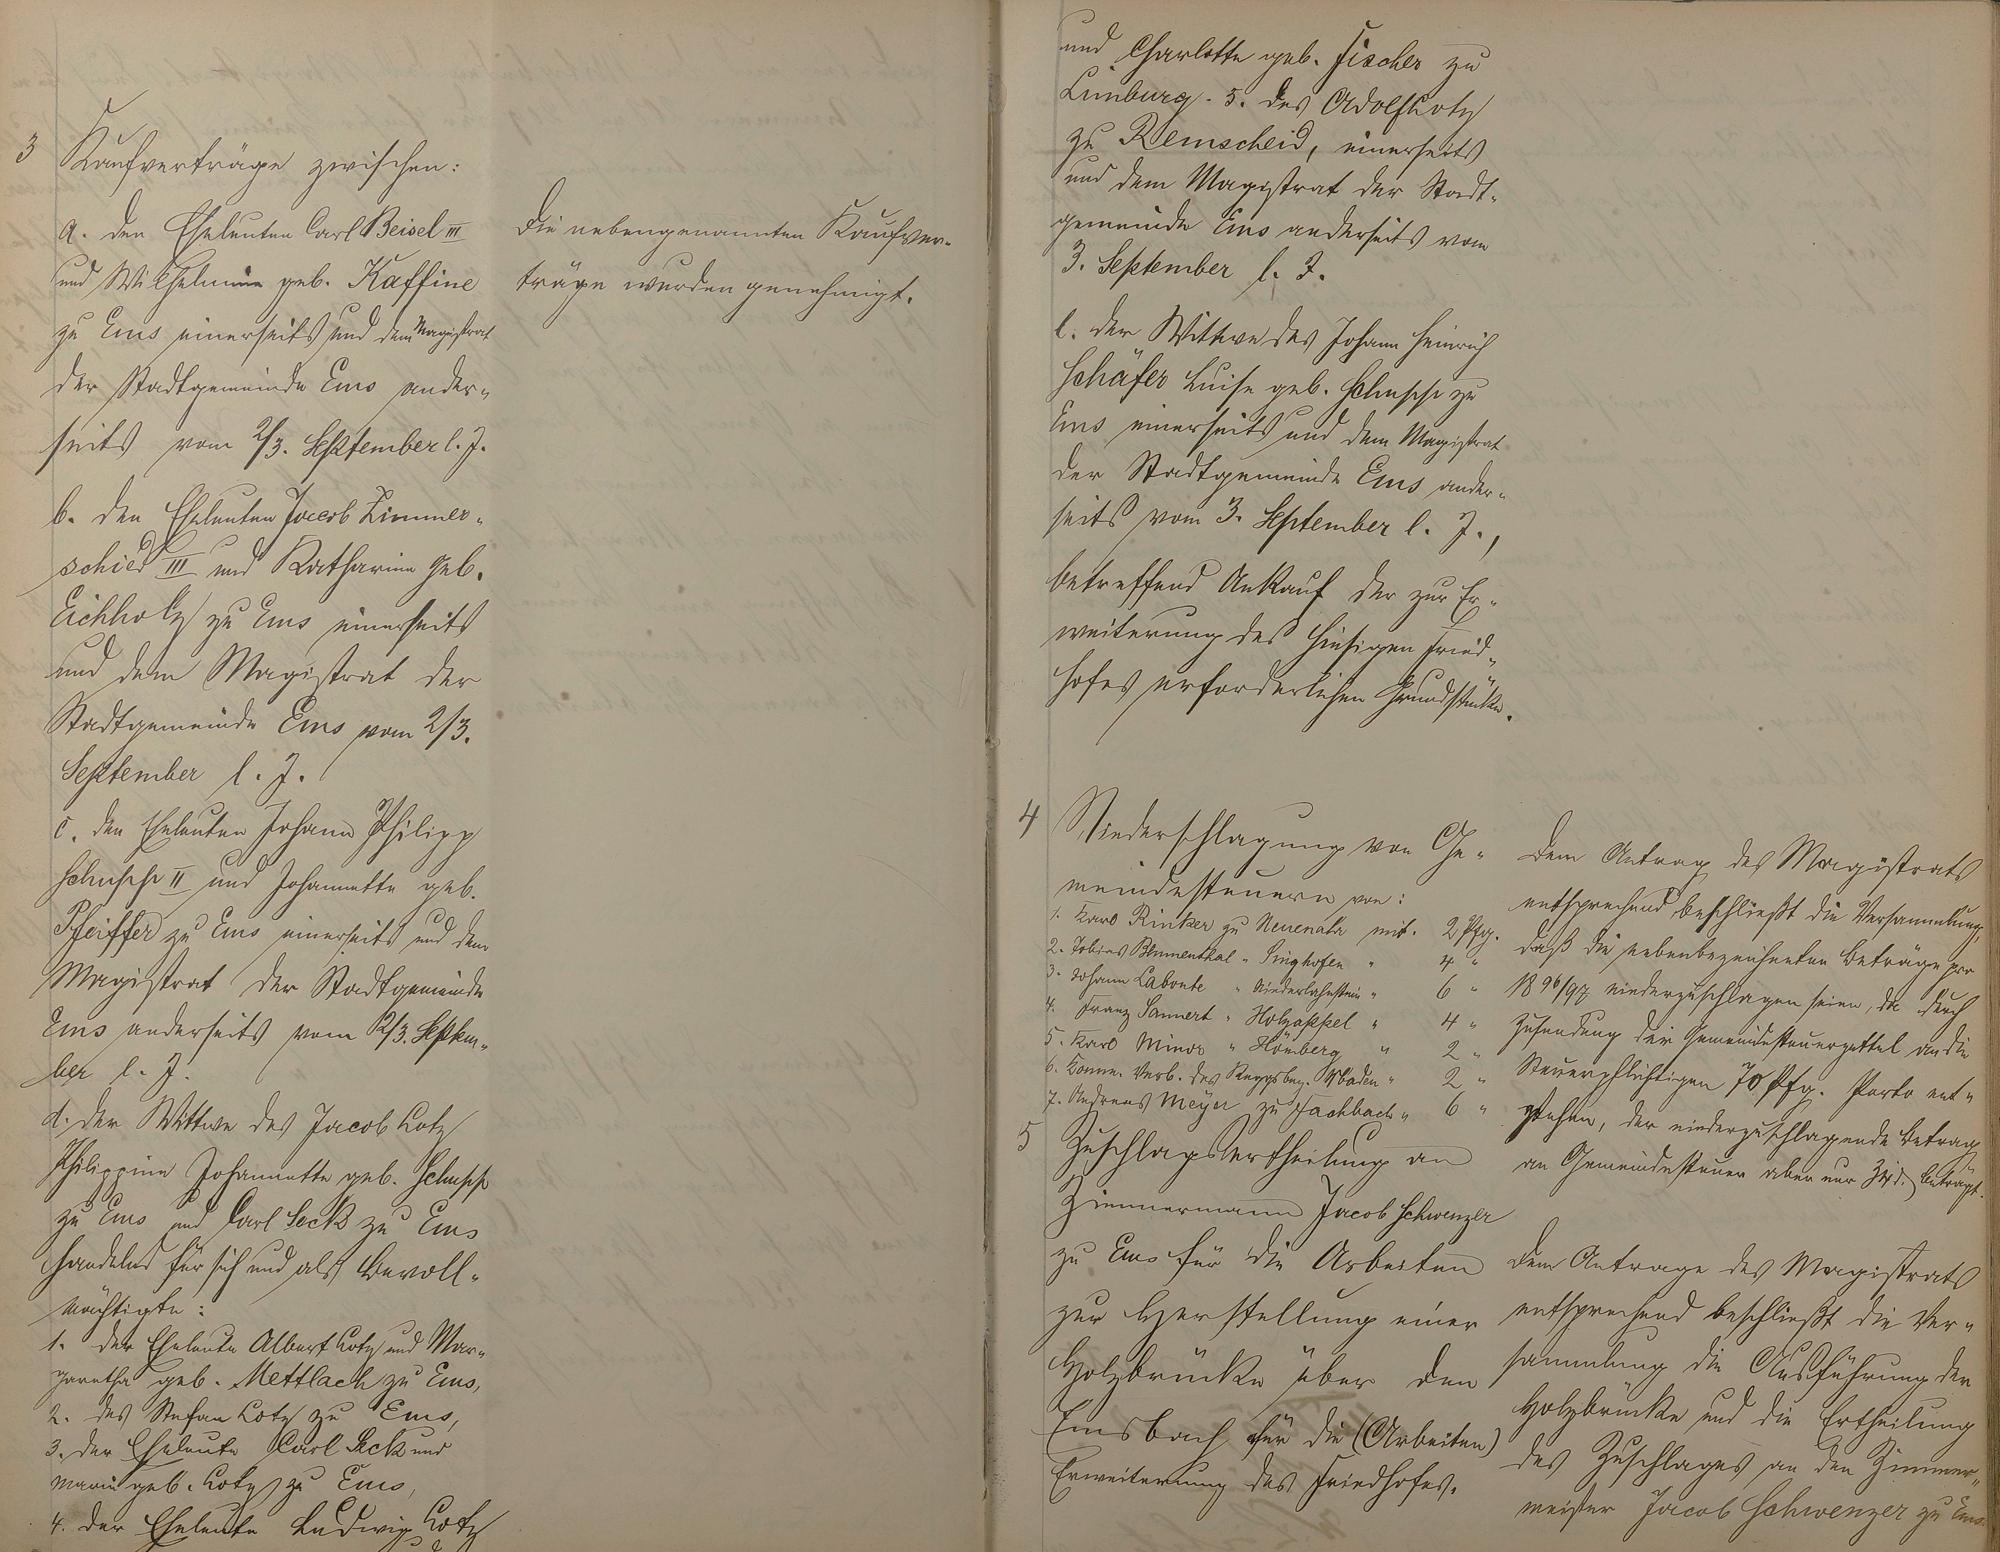 3
Kaufverträge zwischen:
a. den Eheleuten Carl Beisel III
und Wilhelmine geb. Kaffine
zu Ems einerseits und dem Magistrat
der Stadtgemeinde Ems ander-
seits vom 2/3. September l. J.
b. den Eheleuten Jacob Zimmer-
schied III und Katharine geb.
Eichholz zu Ems einerseits
und dem Magistrat der
Stadtgemeinde Ems vom 2/3.
September l. J.
c. den Eheleuten Johann Philipp
Schupp II und Johannette geb.
Pfeiffer zu Ems einerseits und dem
Magistrat der Stadtgemeinde
Ems anderseits vom 2/3. Septem-
ber l. J.
d. der Wittwe des Jacob Lotz
Philippine Johannette geb. Schupp
zu Ems und Carl Seck zu Ems
handelnd für sich und als Bevoll-
mächtigte:
1. der Eheleute Albert Lotz und Mar-
garetha geb. Mettlach zu Ems,
2. des Stefan Lotz zu Ems,
3. der Eheleute Carl Seck und
Marie geb. Lotz zu Ems,
4. der Eheleute Ludwig Lotz
Die nebengenannten Kaufver-
träge wurden genehmigt.
und Charlotte geb. Fischer zu
Limburg. 5. des Adolf Lotz
zu Remscheid, einerseits
und dem Magistrat der Stadt-
gemeinde Ems anderseits vom
3. September l. J.
e. der Wittwe des Johann Heinrich
Schäfer Luise geb. Schupp zu
Ems einerseits und dem Magistrat
der Stadtgemeinde Ems ander-
seits vom 3. September l. J.,
betreffend Ankauf der zur Er-
weiterung des hiesigen Fried-
hofes erforderlichen Grundstücke.
4
Niederschlagung von Ge-
meindesteuern von:
1. Karl Rinker zu Neuenahr mit. 2 Pfg.
2. Tobias Blumenthal " Singhofen " 4 "
3. Johann Labonte " Niederlahnstein " 6 "
4. Franz Sannert " Holzappel " 4 "
5. Karl Minor " Hömberg " 2 "
6. Comm. Verb. des Reggsbez. Wbaden " 2 "
7. Andreas Meyer zu Fachbach " 6 "
Dem Antrag des Magistrats
entsprechend beschließt die Versammlung,
daß die nebenbezeichneten Beträge pro
1896/97 niederzuschlagen seien, da durch
Zusendung der Gemeindesteuerzettel an die
Steuerpflichtigen 70 Pfg. Porto ent-
stehen, der niederzuschlagende Betrag
an Gemeindesteuer aber nur beträgt.
5
Zuschlagsertheilung an
Zimmermann Jacob Schwenzer
zu Ems für die Arbeiten
zur Herstellung einer
Holzbrücke über den
Emsbach für die (Arbeiten)
Erweiterung des Friedhofes.
Dem Antrage des Magistrats
entsprechend beschließt die Ver-
sammlung die Ausführung der
Holzbrücke und die Ertheilung
des Zuschlages an den Zimmer-
meister Jacob Schwenzer zu Ems.